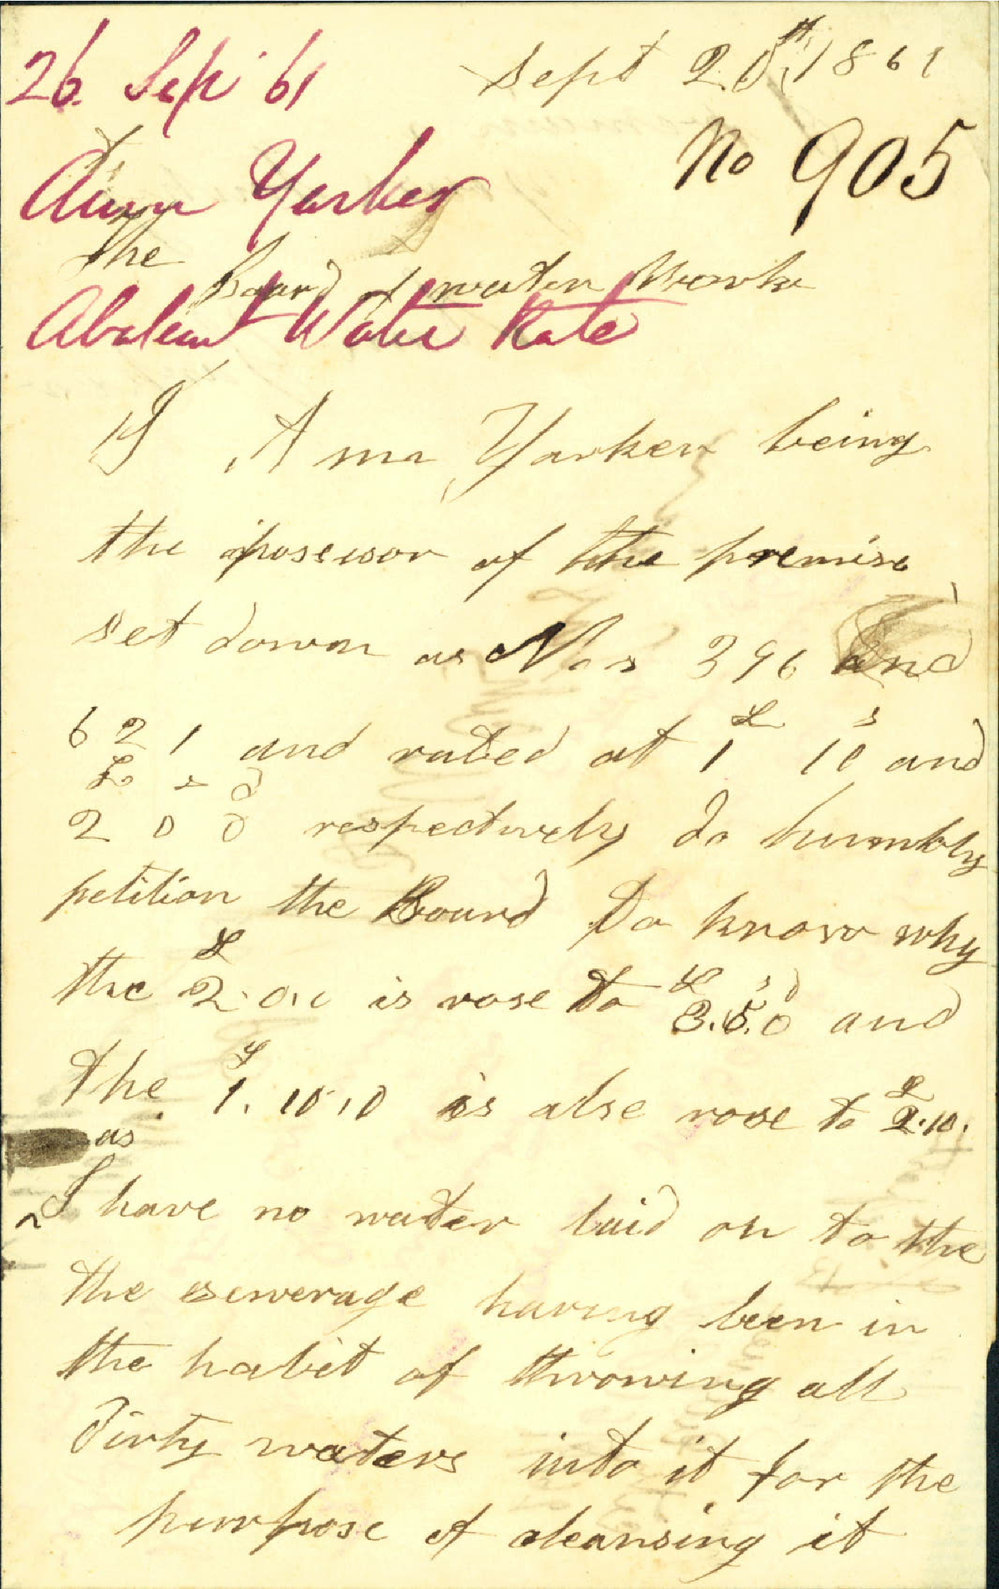 26 Sep 61
Sept 20th, 1861
No 905
Ann Yarker
The
Board of water Works
Abatemt Water Rate
I, Anna Yarker being
the possessor of the premise
set down as Nos 396 and
£ s
621 and rated at 1 10 and
£ s d
2 0 0 respectively do humbly
petition the Board to know why
£
the 2.0.0 is rose to £3.5.0 and
£
the 1.10.0 is also rose to £2.10.
as
^ I have no water laid on to the
the sewerage having been in
the habit of throwing all
dirty waters into it for the
purpose of cleansing it